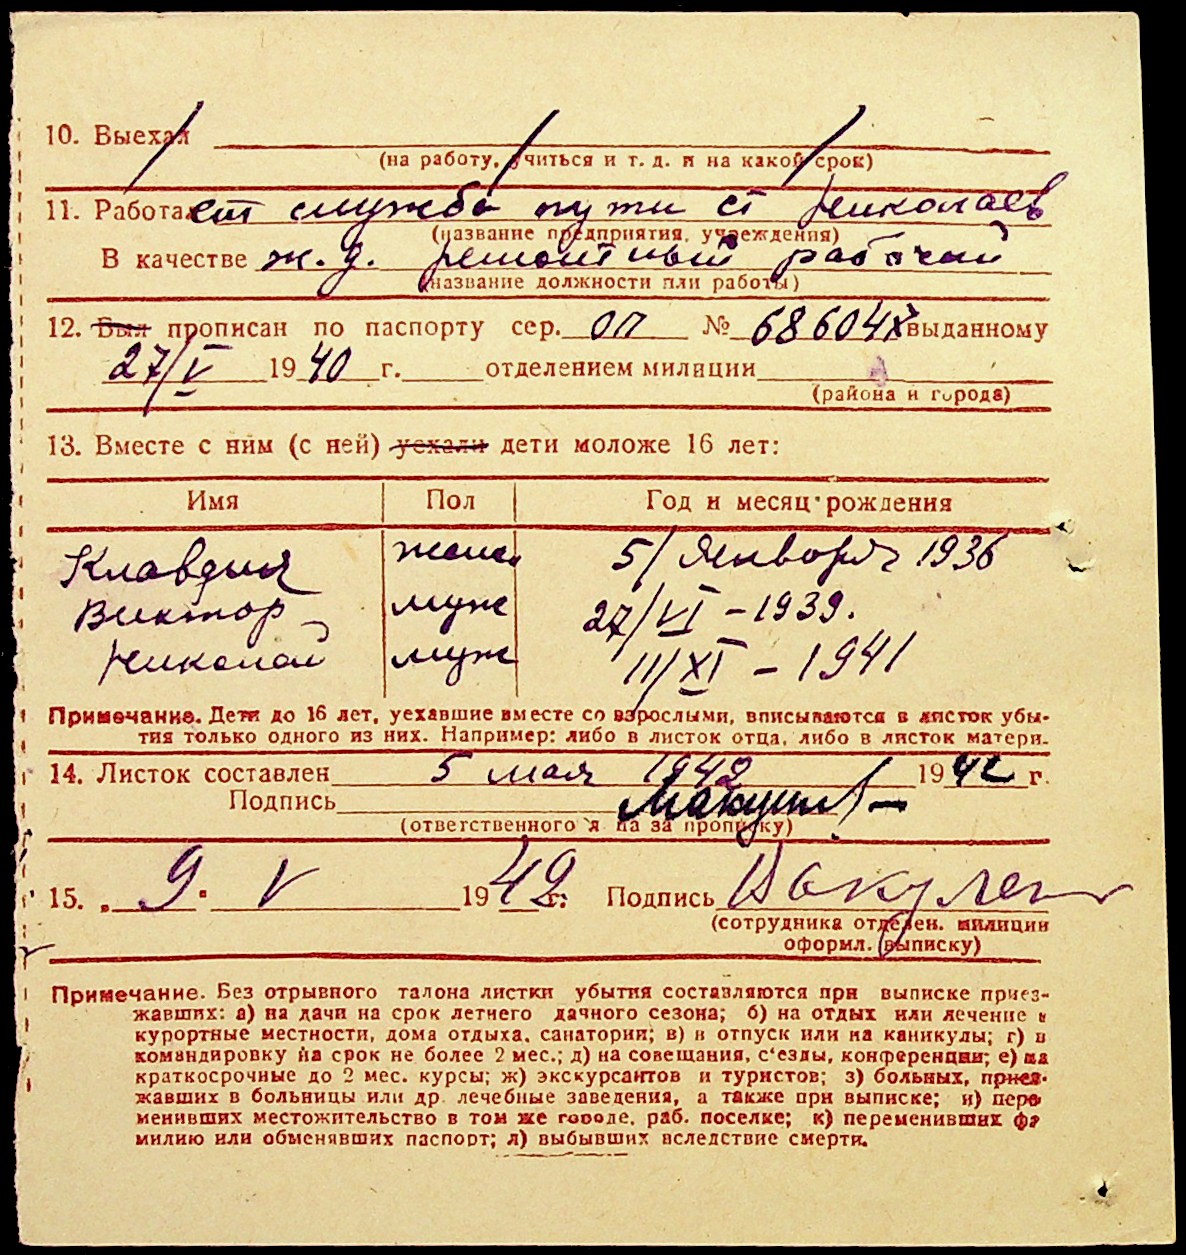 10. Выехал
(на работу, учиться и т. д. и на какой срок)
11. Работает служба пути ст Николаев
(название предприятия, учреждения)
В качестве ж. д. ремонтный рабочий
(название должности или работы)
12. Был прописан по паспорту сер. ОП № 686048 выданному
27/V 1940 г. отделением милиции
(района и города)
13. Вместе с ним (с ней) уехали дети моложе 16 лет:
Имя Пол Год и месяц рождения
Клавдия женс 5/ Января 1936
Виктор муж 27/VI – 1939.
Николай муж 11/XI – 1941
Примечание. Дети до 16 лет, уехавшие вместе со взрослыми, вписываются в листок убы-
тия только одного из них. Например: либо в листок отца, либо в листок матери.
14. Листок составлен 5 мая 1942 1942 г.
Подпись
(ответственного за прописку)
15. „ 9 " V 1942 г. Подпись
(сотрудника отделен. милиции
оформл. выписку)
Примечание. Без отрывного талона листки убытия составляются при выписке приез-
жавших: а) на дачи на срок летнего дачного сезона; б) на отдых или лечение в
курортные местности, дома отдыха, санатории; в) в отпуск или на каникулы; г) в
командировку на срок не более 2 мес.; д) на совещания, с'езды, конференции; е) на
краткосрочные до 2 мес. курсы; ж) экскурсантов и туристов; з) больных, приез-
жавших в больницы или др. лечебные заведения, а также при выписке; и) пере
менивших местожительство в том же городе, раб. поселке; к) переменивших фа
милию или обменявших паспорт; л) выбывших вследствие смерти.